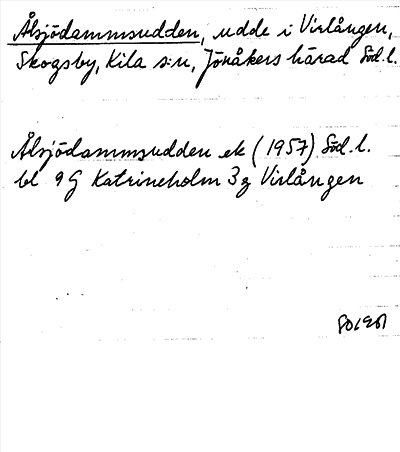 Ålsjödammsudden, udde i Virlången,
Skogsby, Kila s:n, Jönåkers härad Söd. l.
Ålsjödammsudden ek (1957) Söd. l.
bl 9G Katrineholm 3g Virlången